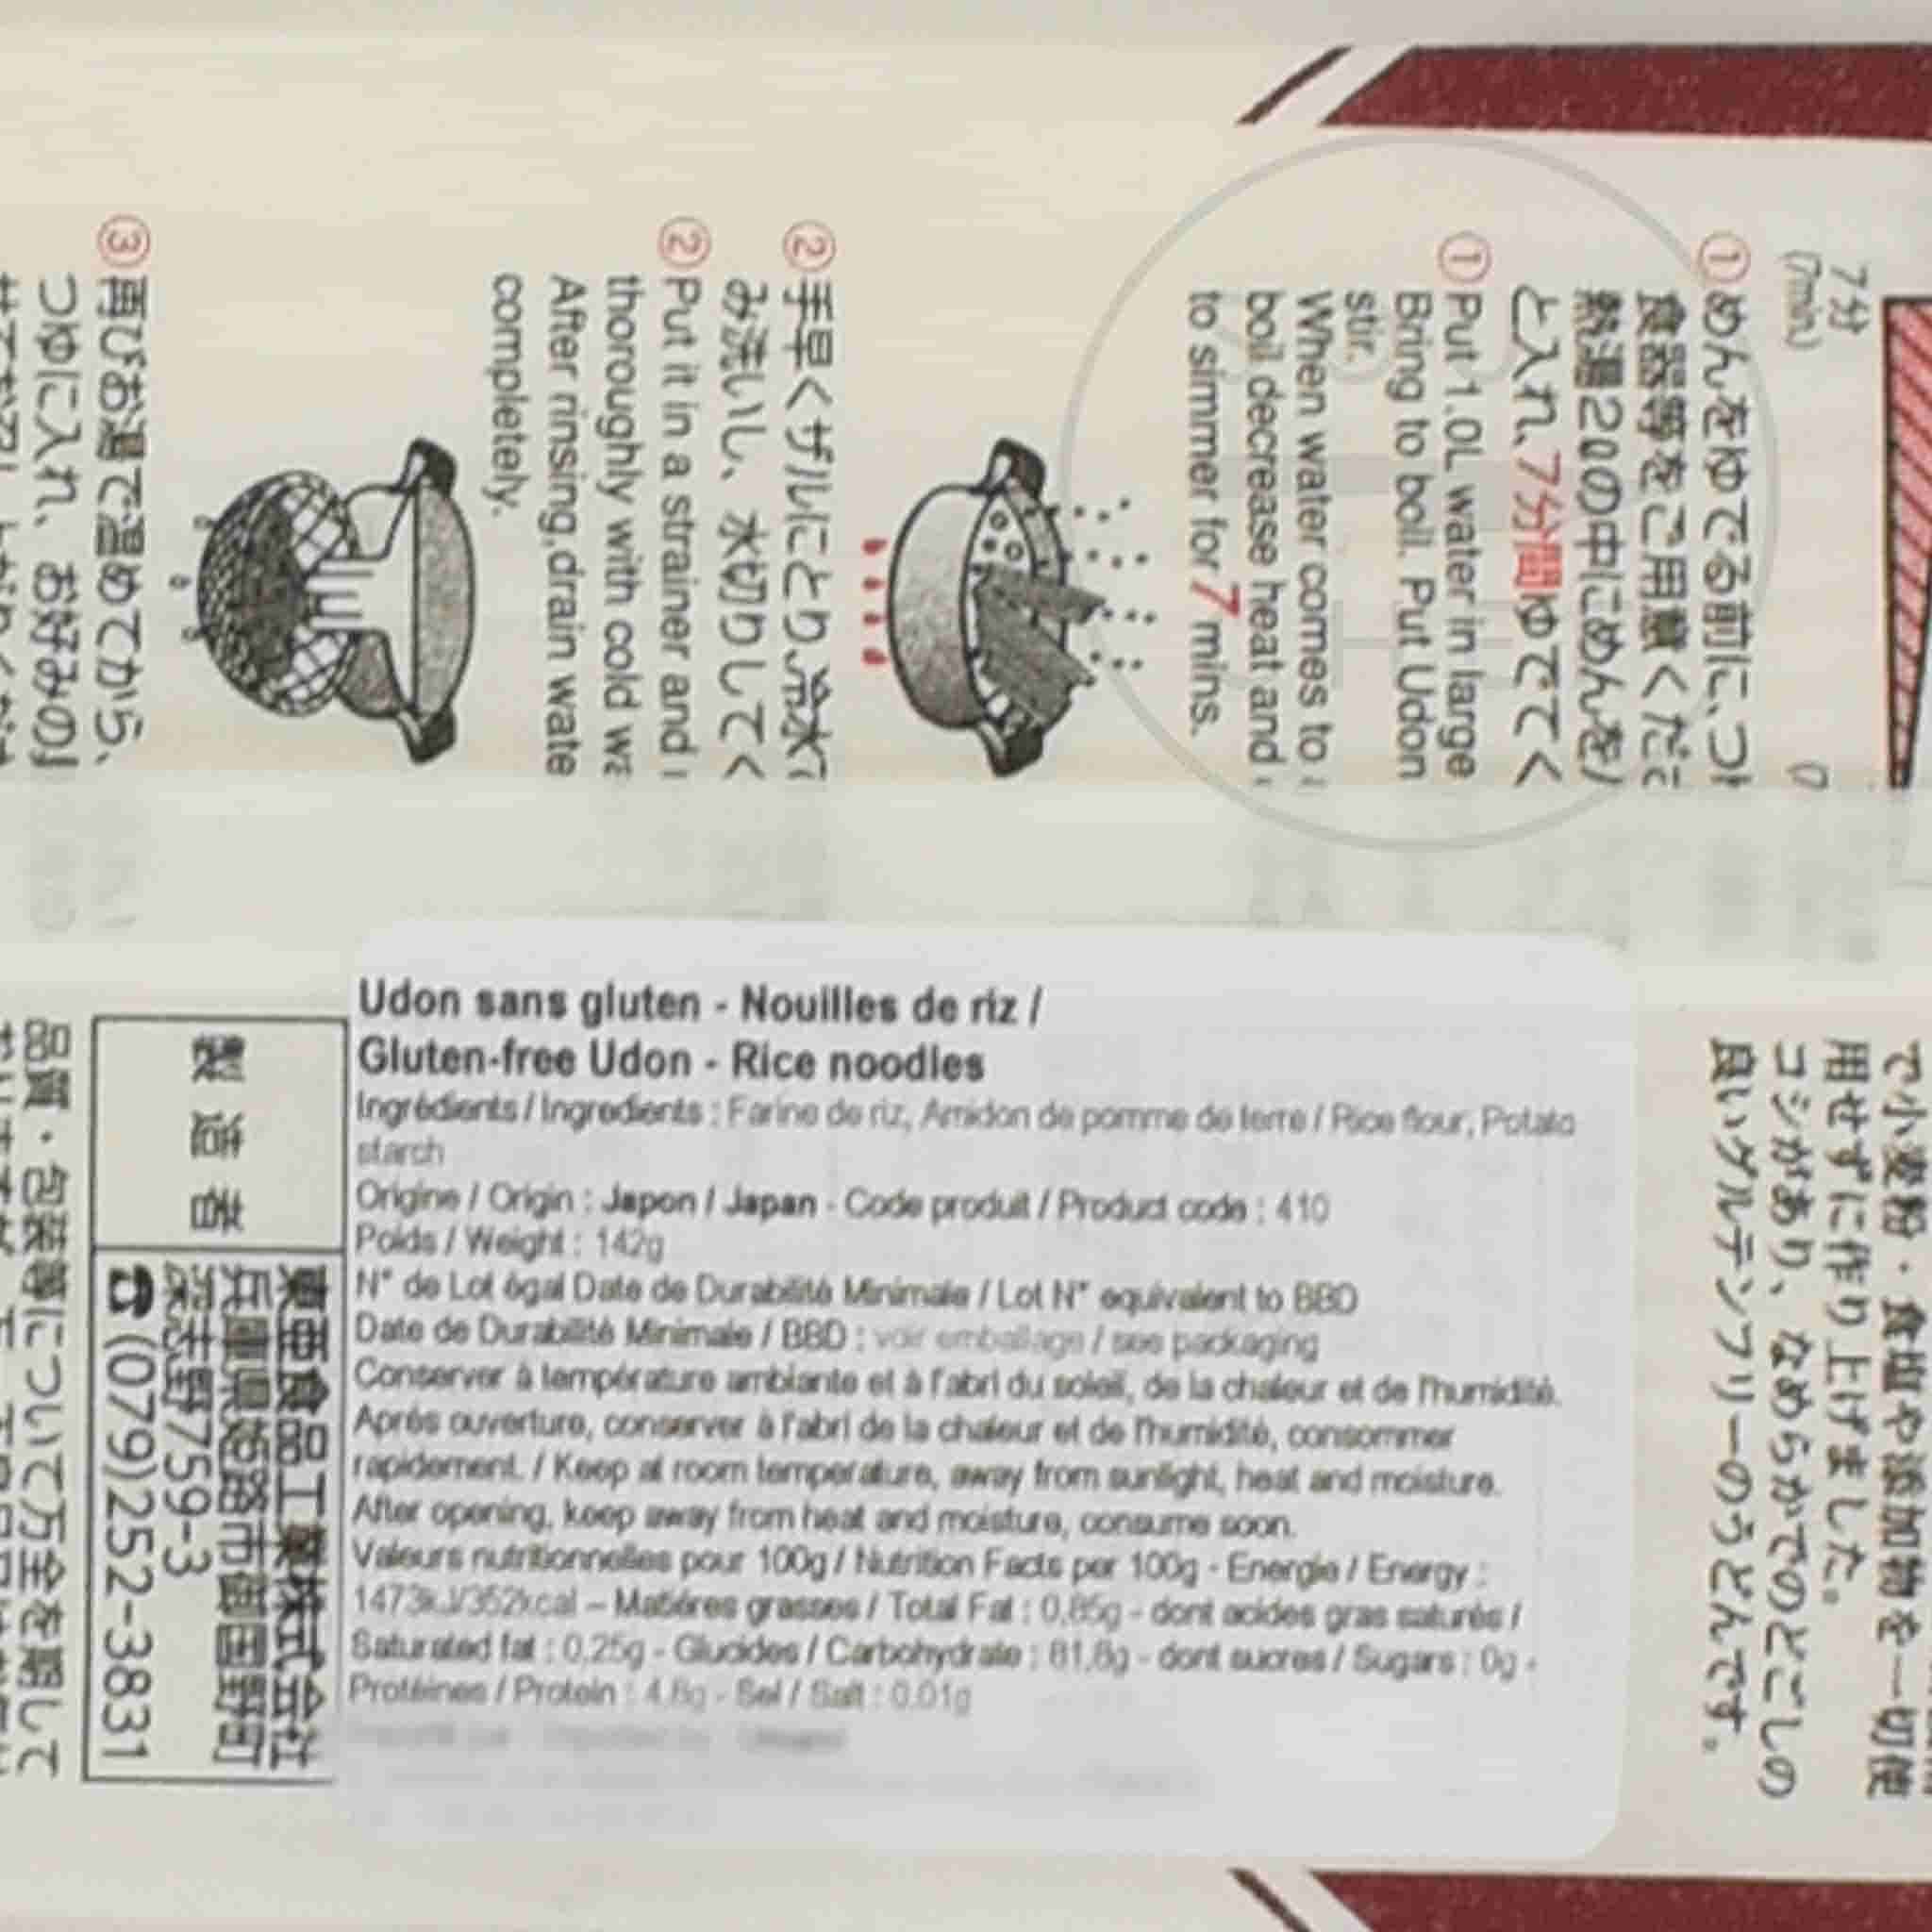 7分
(7min.)
0
①めんをゆでる前に、つ
食器等をご用意くだ
熱湯200の中にめんを
と入れ、7分間ゆでてく
①Put 1.0L water in large
Bring to boil. Put Udon
stir.
When water comes to
boil decrease heat and
to simmer for 7 mins.
②手早くザルにとり、冷水
み洗いし、水切りしてく
②Put it in a strainer and
thoroughly with cold
After rinsing,drain wate
completely.
③再びお湯で温めてから、
つゆに入れ、お好みの
で小麦粉・食塩や添加物を一切使
用せずに作り上げました。
コシがあり、なめらかでのどごしの
良いグルテンフリーのうどんです。
Udon sans gluten - Nouilles de riz /
Gluten-free Udon - Rice noodles
Ingrédients / Ingredients : Farine de riz, Amidon de pomme de terre / Rice flour, Potato
starch
Origine / Origin : Japon / Japan - Code produit / Product code : 410
Poids / Weight : 142g
N° de Lot égal Date de Durabilité Minimale / Lot N° equivalent to BBD
Date de Durabilité Minimale / BBD : voir emballage / see packaging
Conserver à température ambiante et à l'abri du soleil, de la chaleur et de l'humidité.
Après ouverture, conserver à l'abri de la chaleur et de l'humidité, consommer
rapidement. / Keep at room temperature, away from sunlight, heat and moisture.
After opening, keep away from heat and moisture, consume soon.
Valeurs nutritionnelles pour 100g / Nutrition Facts per 100g - Energie / Energy :
1473kJ/352kcal – Matières grasses / Total Fat : 0,85g - dont acides gras saturés /
Saturated fat : 0,25g - Glucides / Carbohydrate : 81,8g - dont sucres / Sugars : 0g -
Protéines / Protein : 4,8g - Sel / Salt : 0.01g
製造者
東亜食品工業株式会社
兵庫県姫路市御国野町
深志野759-3
☎(079)252-3831
品質・包装等について万全を期して